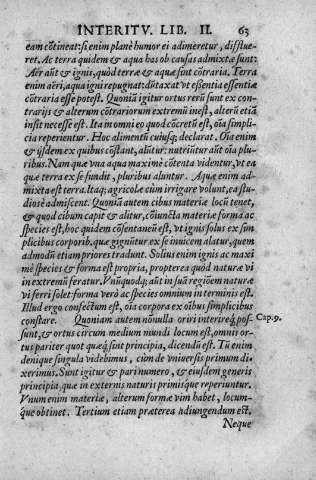 INTERITV. LIB. II. 63
eam cōtineat: si, enim planè humor ei adimeretur, difflue-
ret. Ac terra quidem & aqua has ob causas admixtæ sunt:
Aër aūt & ignis, quòd terræ & aquæ sint cōtraria. Terra
enim aëri, aqua igni repugnat: dūtaxat vt eßentia eßentiæ
cōtraria esse potest. Quoniā igitur ortus rerū sunt ex con-
trarijs & alterum cōtrariorum extremū inest, alterū etiā
insit necesse est. Ita in omni eo quod cōcretū est, oīa simpli-
cia reperientur. Hoc alimentū cuiusq; declarat. Oīa enim
& ijsdem ex quibus cōstant, alūtur: nutriūtur aūt oīa plu-
ribus. Nam quæ vna aqua maximè cōtenta videntur, vt ea
quæ terra ex se fundit, pluribus aluntur. Aquæ enim ad-
mixta est terra. Itaq; agricolæ cùm irrigare volunt, ea stu-
diosè admiscent. Quoniā autem cibus materiæ locū tenet,
& quod cibum capit & alitur, cōiuncta materiæ forma ac
species est, hoc quidem cōsentaneū est, vt ignis solus ex sim
plicibus corporib. quæ gignūtur ex se inuicem alatur, quem
admodū etiam priores tradunt. Solius enim ignis ac maxi
mè species & forma est propria, propterea quòd naturæ vi
in extremū feratur. Vnūquodq; aūt in suā regiōem naturæ
vi ferri solet: forma verò ac species omnium in terminis est.
Illud ergo confectum est, oīa corpora ex oībus simplicibus
constare. Quoniam autem nōnulla oriri interireq́; pos- Cap. 9.
sunt, & ortus circum medium mundi locum est, omnis or-
tus pariter quot quæq́; sint principia, dicendū est. Tū enim
denique singula videbimus, cùm de vniuersis primum di-
xerimus. Sunt igitur & pari numero, & eiusdem generis
principia, quæ in externis naturis primisque reperiuntur.
Vnum enim materiæ, alterum formæ vim habet, locum-
que obtinet. Tertium etiam præterea adiungendum est,
Neque